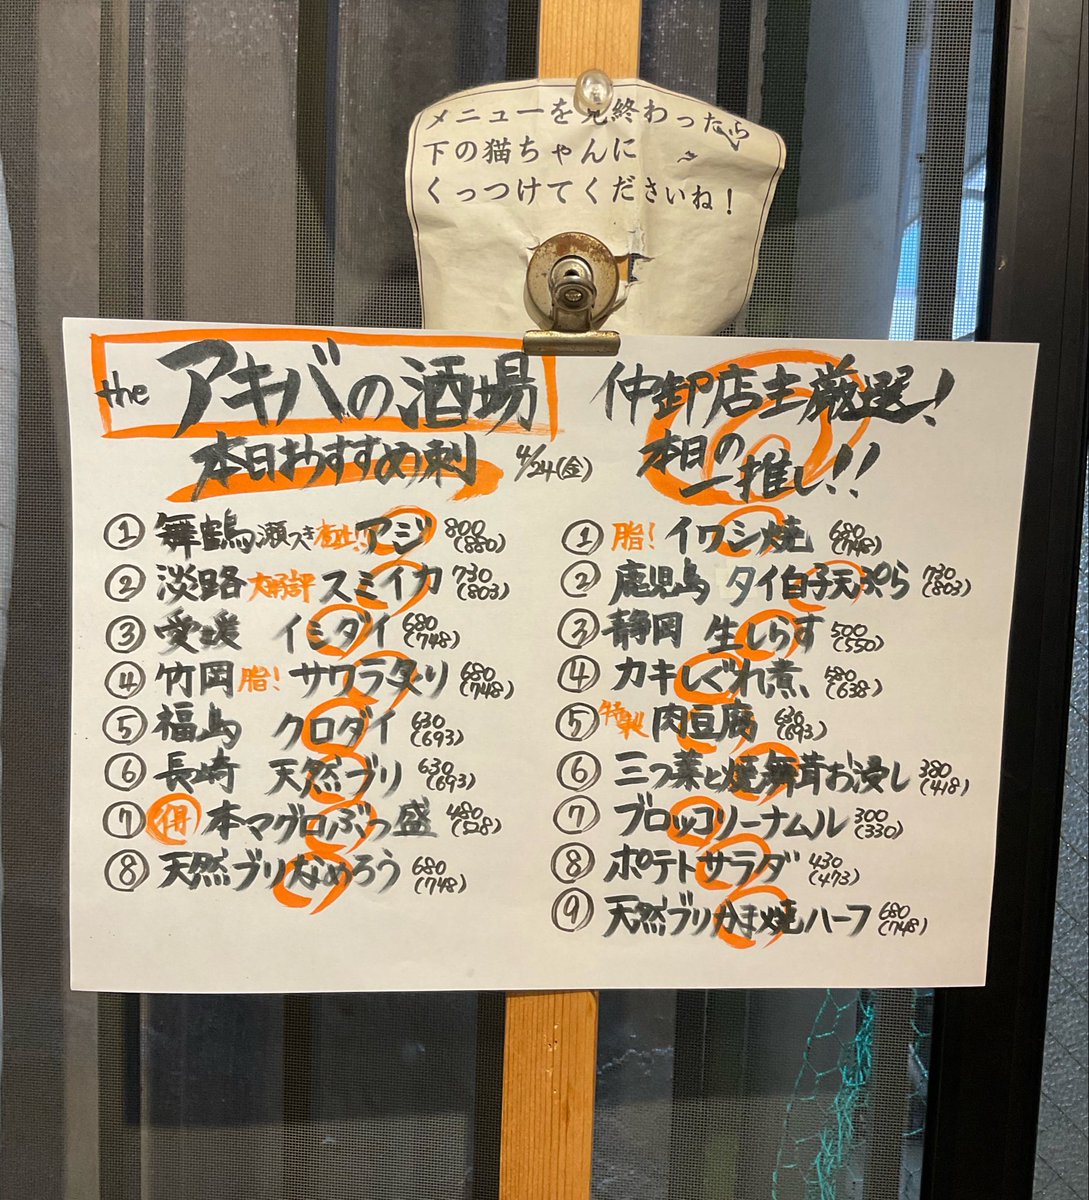 メニューを見終わったら
下の猫ちゃんに
くっつけてくださいね！
the アキバの酒場
本日おすすめ刺 4/24(金)
① 舞鶴 瀬つき 極上!! アジ 800 (880)
② 淡路 大好評 スミイカ 730 (803)
③ 愛媛 イシダイ 680 (748)
④ 竹岡 脂! サワラ炙り 680 (748)
⑤ 福島 クロダイ 630 (693)
⑥ 長崎 天然ブリ 630 (693)
⑦ 得 本マグロぶつ盛 480
⑧ 天然ブリなめろう 680 (748)
仲卸店主厳選!
本日の
一推し!!
① 脂! イワシ焼 680 (748)
② 鹿児島 タイ白子天ぷら 730 (803)
③ 静岡 生しらす 500 (550)
④ カキしぐれ煮 580 (638)
⑤ 特製 肉豆腐 630 (693)
⑥ 三つ葉と焼舞茸お浸し 380 (418)
⑦ ブロッコリーナムル 300 (330)
⑧ ポテトサラダ 430 (473)
⑨ 天然ブリかま焼ハーフ 680 (748)